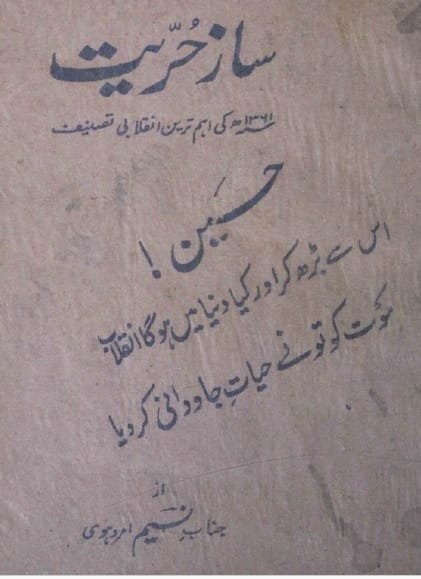 سازِ حُرّیت
۱۳۶۱ھ کی اہم ترین انقلابی تصنیف
حسین !
اس سے بڑھ کر اور کیا دنیا میں ہوگا انقلاب
موت کو تو نے حیاتِ جاودانی کر دیا
از
جناب نسیم امروہوی